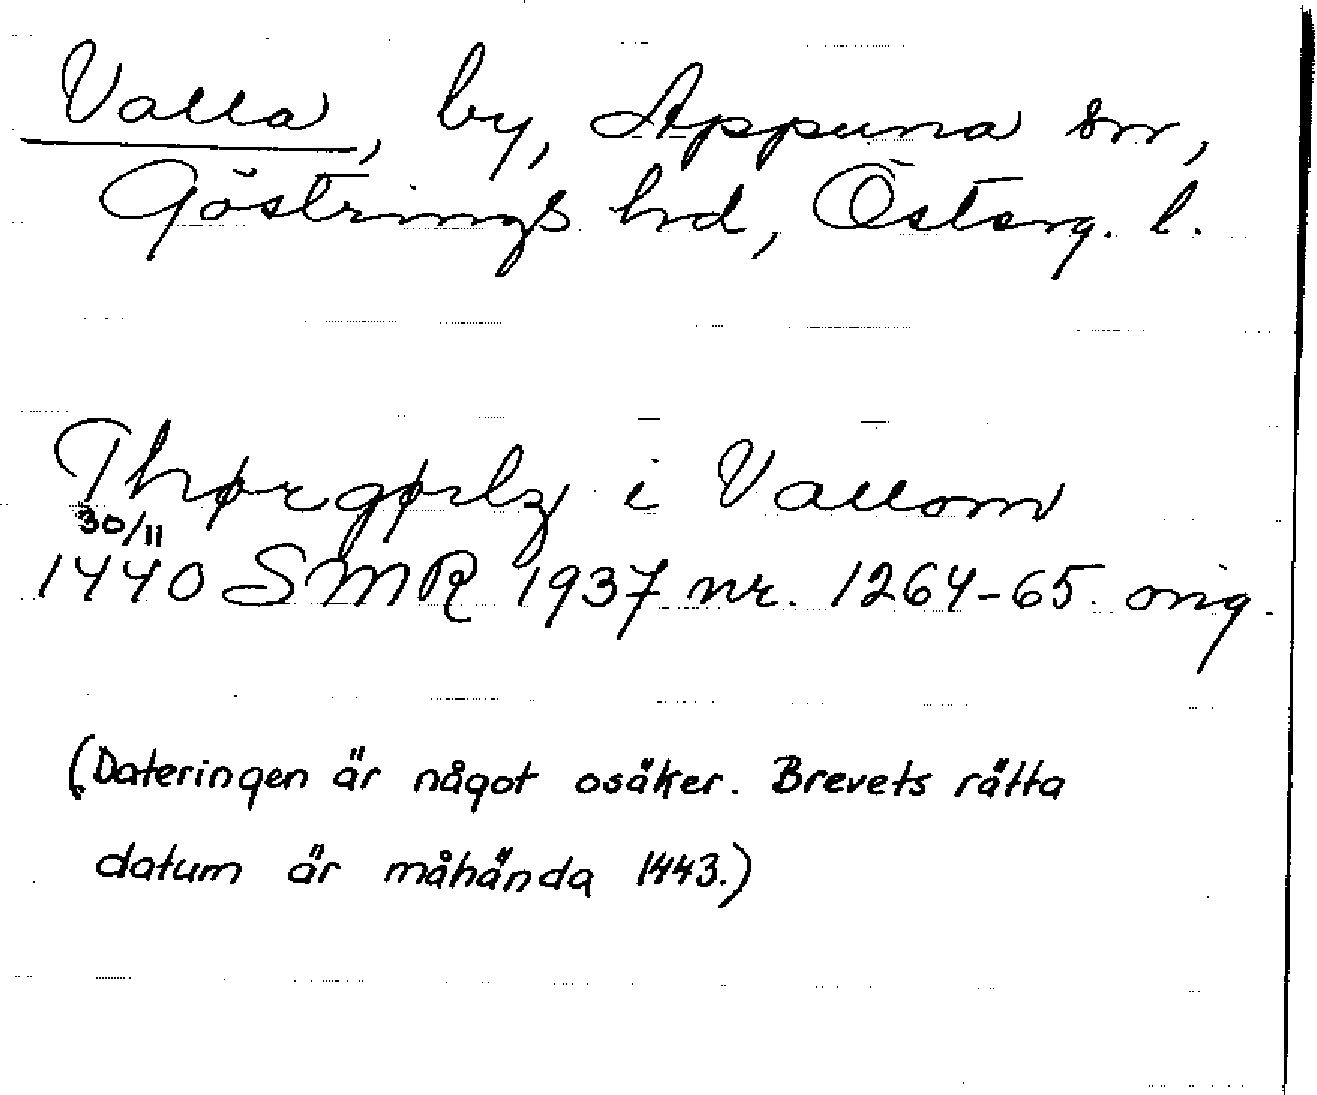 Valla, by, Appuna sn,
Göstrings hd, Österg. l.
Thørgørlz i Vallom
30/11
1440 SMR 1937 nr. 1264-65. orig.
(Dateringen är något osäker. Brevets rätta
datum är måhända 1443.)